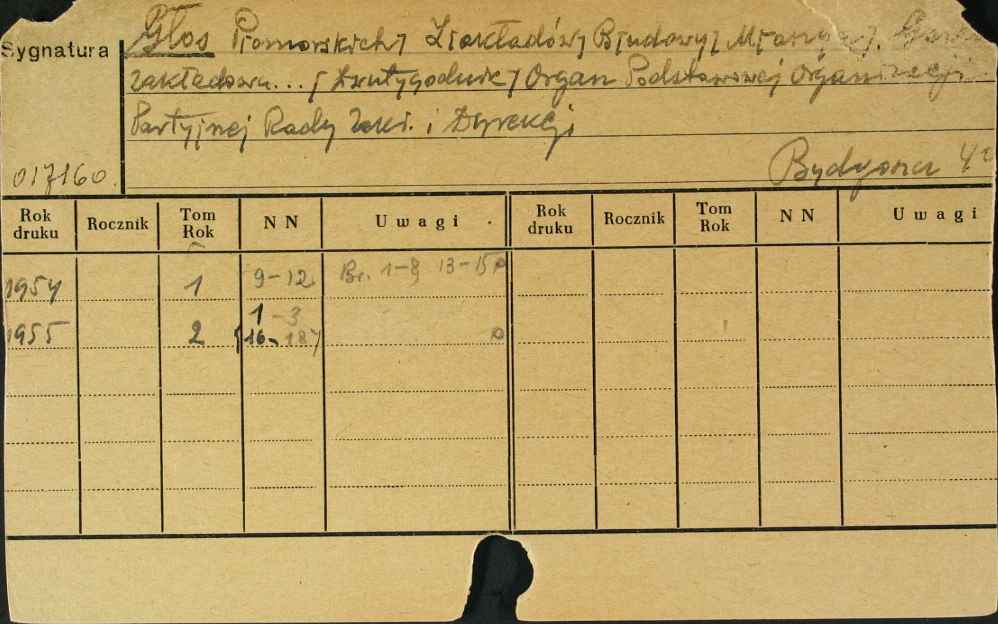 Sygnatura
Głos P[omorskich] Z[akładów] B[udowy] M[aszyn].
zakładowa... [Dwutygodnik] Organ Podstawowej Organizacji
Partyjnej Rady Zakł. i Dyrekcji
Bydgoszcz 4°
017160.
Rok druku Rocznik Tom Rok NN Uwagi Rok druku Rocznik Tom Rok NN Uwagi
1954 1 9-12 Br. 1-8, 13-15
1955 2 1-3
[16-18]